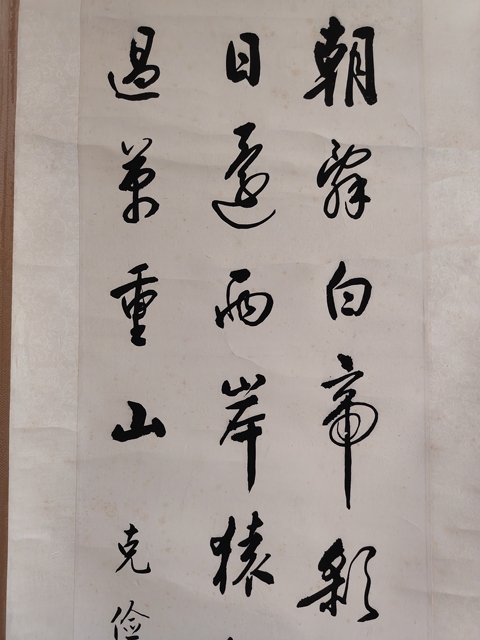 朝辞白帝彩
日還两岸猿
過萬重山
克俭